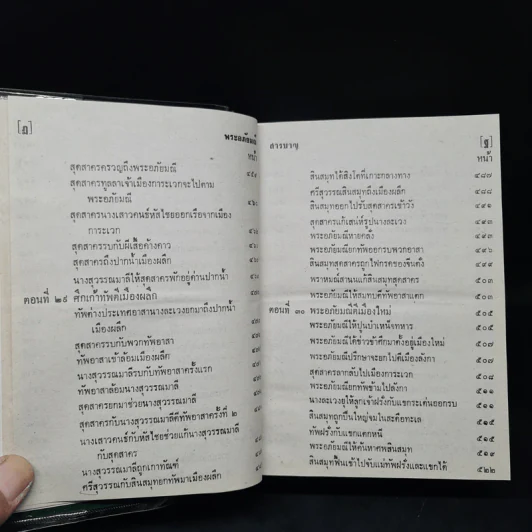 [ฏ]
พระอภัยมณี
หน้า
สุดสาครครวญถึงพระอภัยมณี
สุดสาครทูลลาเจ้าเมืองการะเวกจะไปตาม
พระอภัยมณี
สุดสาครนางเสาวคนธ์หัสไชยออกเรือจากเมือง
การะเวก
สุดสาครรบกับผีเสื้อค้างคาว
สุดสาครถึงปากน้ำเมืองผลึก
นางสุวรรณมาลีให้สุดสาครพักอยู่ด่านปากน้ำ
ตอนที่ ๒๙ ศึกเก้าทัพตีเมืองผลึก
ทัพต่างประเทศอาสานางละเวงยกมาถึงปากน้ำ
เมืองผลึก
สุดสาครรบกับพวกทัพอาสา
ทัพอาสาเข้าล้อมเมืองผลึก
นางสุวรรณมาลีรบกับทัพอาสาครั้งแรก
ทัพอาสาล้อมนางสุวรรณมาลี
สุดสาครยกมาช่วยนางสุวรรณมาลี
สุดสาครกับนางสุวรรณมาลีตีทัพอาสาครั้งที่ ๒
นางเสาวคนธ์กับหัสไชยช่วยแก้นางสุวรรณมาลี
กับสุดสาคร
นางสุวรรณมาลีถูกเกาทัณฑ์
ศรีสุวรรณกับสินสมุทยกทัพมาเมืองผลึก
สารบาญ
[ฐ]
หน้า
สินสมุทได้สิงโตที่เกาะกลางทาง ๔๘๗
ศรีสุวรรณสินสมุทถึงเมืองผลึก ๔๘๘
สินสมุทออกไปรับสุดสาครเข้าวัง ๔๙๑
สุดสาครแก้เสน่ห์รูปนางละเวง ๔๙๓
พระอภัยมณีหายคลั่ง
พระอภัยมณียกทัพออกรบพวกอาสา
สินสมุทสุดสาครถูกไฟกรดของจีนตั๋ง ๔๙๙
พราหมณ์สานนแก้สินสมุทสุดสาคร ๕๐๓
พระอภัยมณีให้สมทบตีทัพอาสาแตก ๕๐๓
ตอนที่ ๓๐ พระอภัยมณีตีเมืองใหม่ ๕๐๕
พระอภัยมณีให้ปูนบำเหน็จทหาร ๕๐๕
พระอภัยมณีให้ข่าวข้าศึกมาตั้งอยู่เมืองใหม่ ๕๐๗
พระอภัยมณีปรึกษาจะยกไปตีเมืองลังกา ๕๐๗
สุดสาครลากลับไปเมืองการะเวก
พระอภัยมณียกทัพข้ามไปลังกา ๕๑๑
นางละเวงยุให้ลูกเจ้าฝรั่งกับแขกระเด่นออกรบ ๕๑๑
สินสมุทถูกปืนใหญ่จมในสะดือทะเล
ทัพฝรั่งกับแขกแตกหนี ๕๑๕
พระอภัยมณีให้ค้นหาศพสินสมุท
สินสมุทฟื้นเข้าไปจับแม่ทัพฝรั่งและแขกได้ ๕๒๒